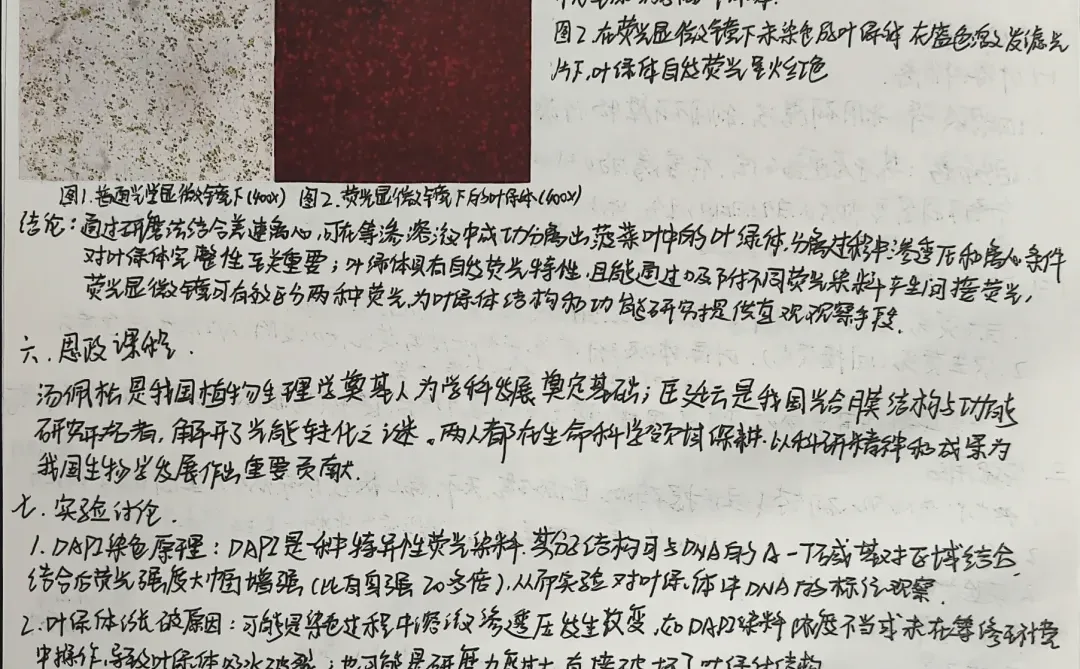 图2.在荧光显微镜下未染色的叶绿体 在蓝色激发滤光
片下,叶绿体自发荧光呈火红色
图1.普通光学显微镜下(400x) 图2.荧光显微镜下的叶绿体(400x)
结论:通过研磨法结合差速离心,可在等渗溶液中成功分离出菠菜叶中的叶绿体.分离过程中渗透压和离心条件
对叶绿体完整性至关重要;叶绿体具有自发荧光特性,且能通过吸附不同荧光染料产生间接荧光,
荧光显微镜可有效区分两种荧光,为叶绿体结构和功能研究提供直观观察手段.
六.思政课程.
汤佩松是我国植物生理学奠基人为学科发展奠定基础;匡廷云是我国光合膜结构与功能
研究开拓者,解开了光能转化之谜。两人都在生命科学领域深耕.以科研精神和成果为
我国生物学发展作出重要贡献.
七.实验讨论.
1.DAPI染色原理:DAPI是一种特异性荧光染料.其分子结构可与DNA的A-T碱基对区域结合,
结合后荧光强度大幅增强(比自身强20多倍),从而实验对叶绿体中DNA的标行观察.
2.叶绿体涨破原因:可能是染色过程中溶液渗透压发生改变,如DAPI染料浓度不当或未在等渗环境
中操作,导致叶绿体吸水破裂;也可能是研磨力度过大,直接破坏了叶绿体结构